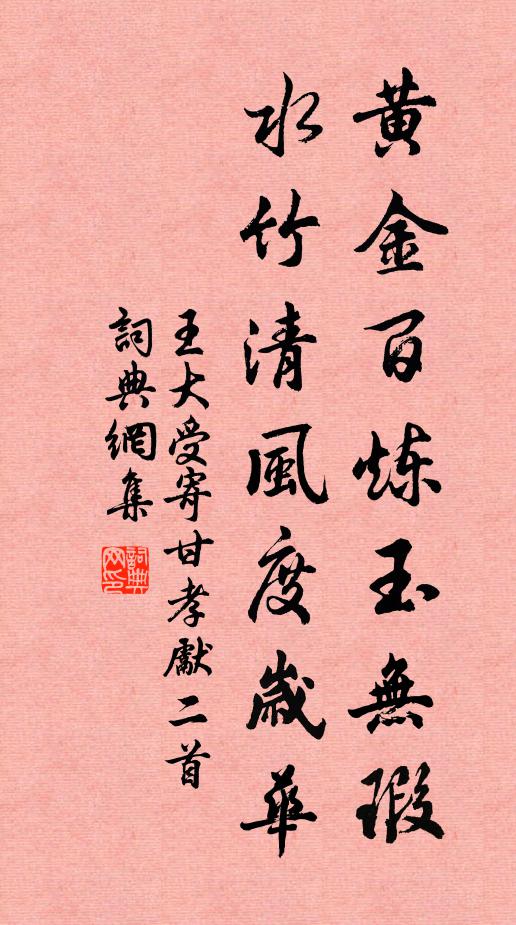 黄金百炼玉無瑕
水竹清風度歲華
王大受寄甘孝獻二首
詞典網集
詞典网印